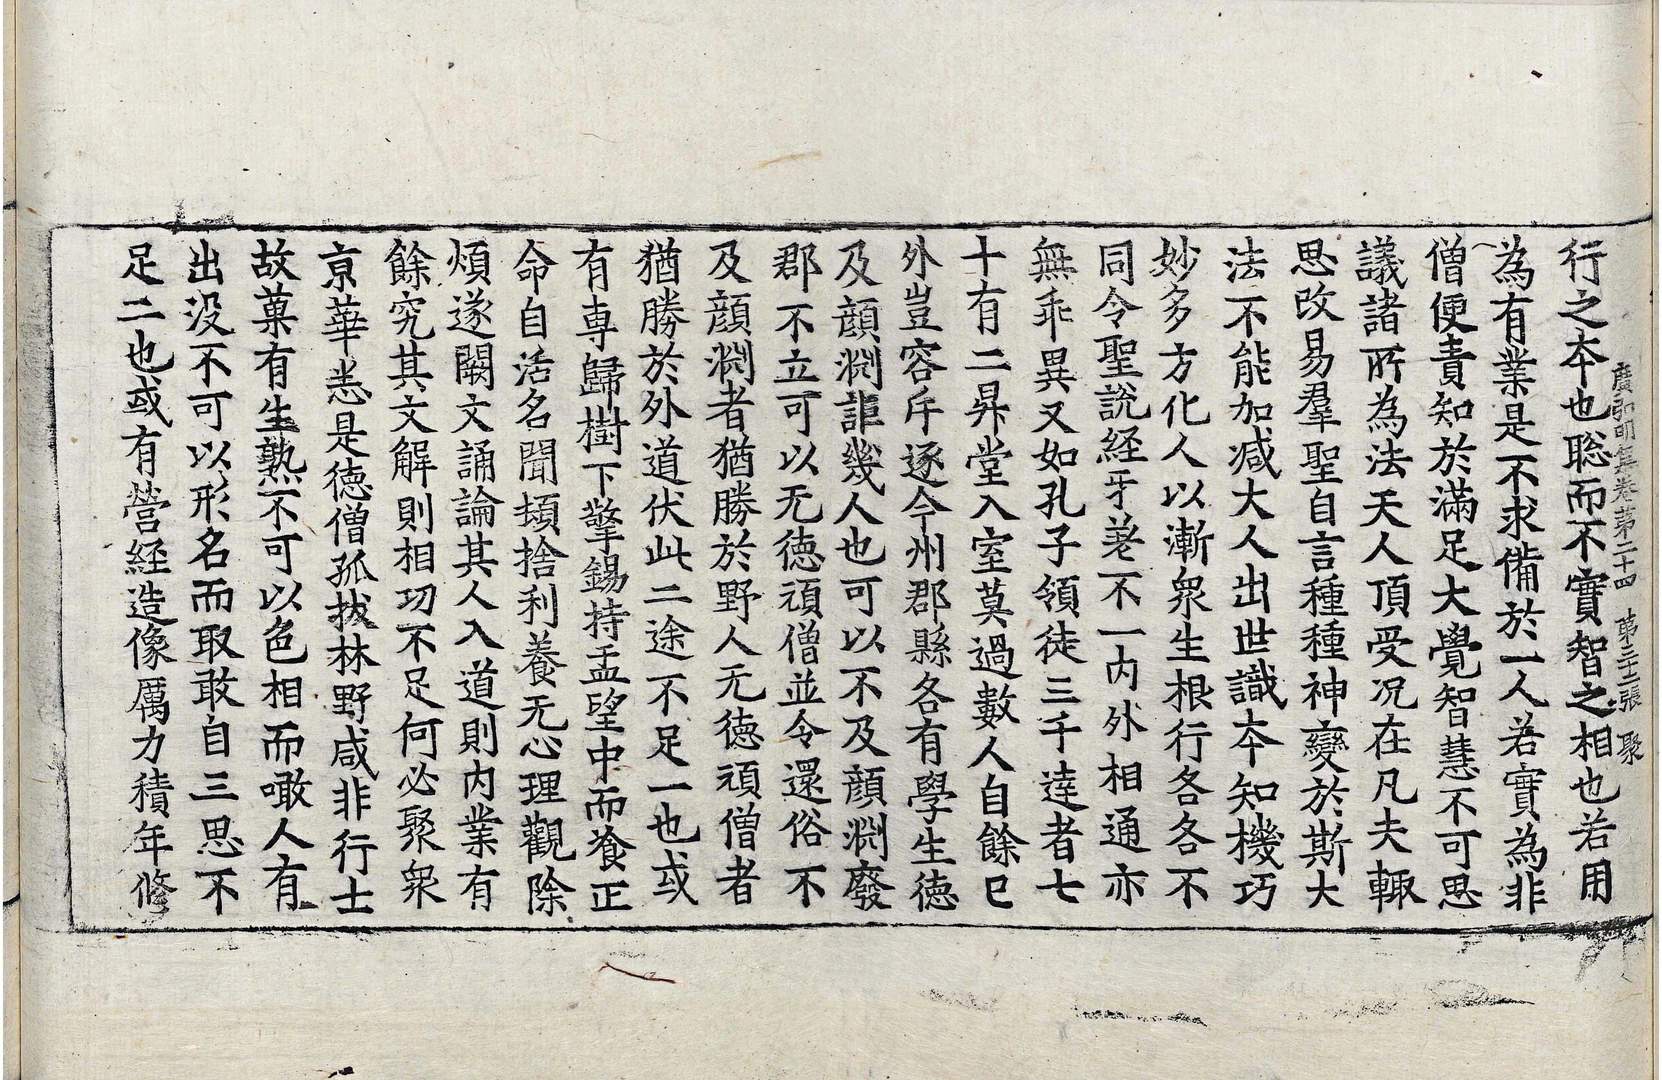 廣弘明集卷第二十四　第二十二張　聚
行之本也聡而不實智之相也若用
為有業是不求備於一人若實為非
僧便責知於滿足大覺智慧不可思
議諸所為法天人頂受况在凡夫輙
思改易羣聖自言種種神變於斯大
法不能加减大人出世識本知機巧
妙多方化人以漸衆生根行各各不
同令聖說経牙差不一内外相通亦
無乖異又如孔子領徒三千達者七
十有二昇堂入室莫過數人自餘已
外豈容斥逐今州郡縣各有學生德
及顔淵詎幾人也可以不及顔淵廢
郡不立可以无德頑僧並令還俗不
及顔淵者猶勝於野人无德頑僧者
猶勝於外道伏此二途不足一也或
有専歸樹下擎錫持盂望中而飡正
命自活名聞頓捨利養无心理觀除
煩遂闕文誦論其人入道則内業有
餘究其文解則相功不足何必聚衆
京華悉是德僧孤拔林野咸非行士
故菓有生熟不可以色相而噉人有
出没不可以形名而取敢自三思不
足二也或有營経造像厲力積年修